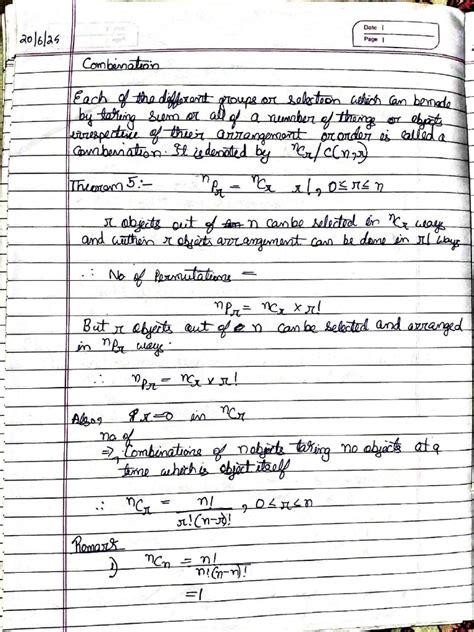 Date
Page
20/6/25
Combination
Each of the different groups or selection which can be made
by taking some or all of a number of things or objects
irrespective of their arrangement or order is called a
combination. It is denoted by ⁿCr / C(n,r)
Theorem 5:- ⁿPr = ⁿCr r!, 0≤r≤n
r objects out of n can be selected in ⁿCr ways
and within r objects arrangement can be done in r! ways
∴ No of Permutations =
ⁿPr = ⁿCr × r!
But r objects out of n can be selected and arranged
in ⁿPr ways.
∴ ⁿPr = ⁿCr × r!
Also, r=0 in ⁿCr
no. of
⇒ Combinations of n objects taking no objects at a
time which is object itself
∴ ⁿCr = n!/r!(n-r)!, 0≤r≤n
Remark
1) ⁿCn = n!/n!(n-n)!
=1